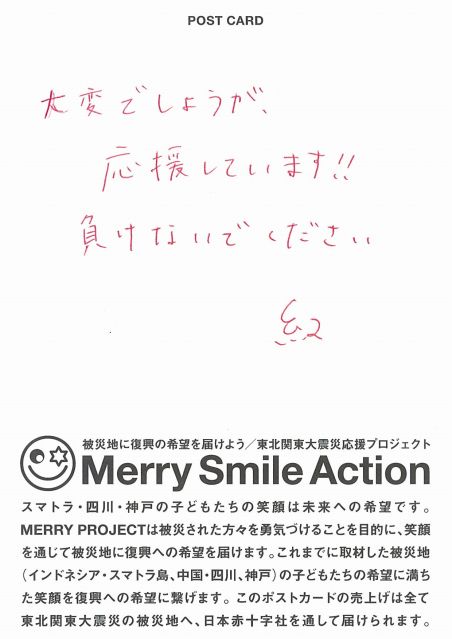 POST CARD
大変でしょうが、
応援しています!!
負けないでください
被災地に復興の希望を届けよう／東北関東大震災応援プロジェクト
Merry Smile Action
スマトラ・四川・神戸の子どもたちの笑顔は未来への希望です。
MERRY PROJECTは被災された方々を勇気づけることを目的に、笑顔
を通じて被災地に復興への希望を届けます。これまでに取材した被災地
（インドネシア・スマトラ島、中国・四川、神戸）の子どもたちの希望に満ち
た笑顔を復興への希望に繋げます。このポストカードの売上げは全て
東北関東大震災の被災地へ、日本赤十字社を通して届けられます。